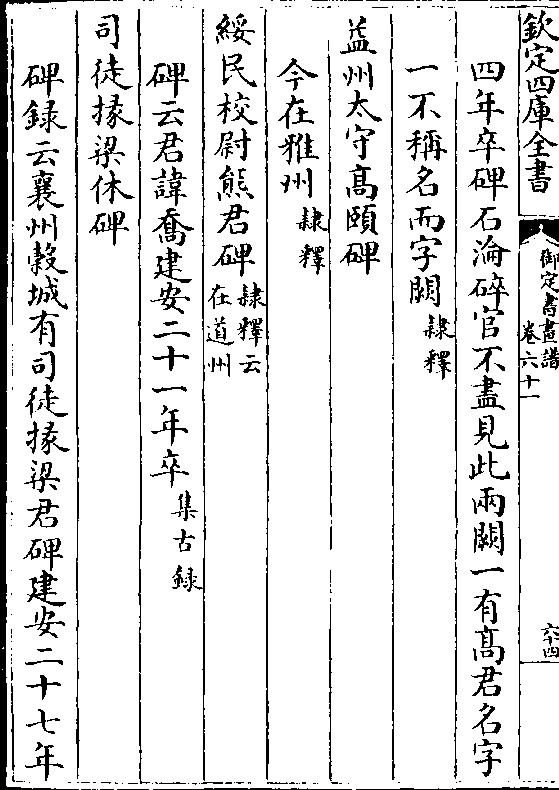 欽定四庫全書
御定書畫譜
卷六十一
六十四
四年卒碑石淪碎官不盡見此兩闕一有髙君名字
一不稱名而字闕隸釋
益州太守髙頤碑
今在雅州隸釋
綏民校尉熊君碑隸釋云在道州
碑云君諱喬建安二十一年卒集古録
司徒掾梁休碑
碑録云襄州榖城有司徒掾梁君碑建安二十七年